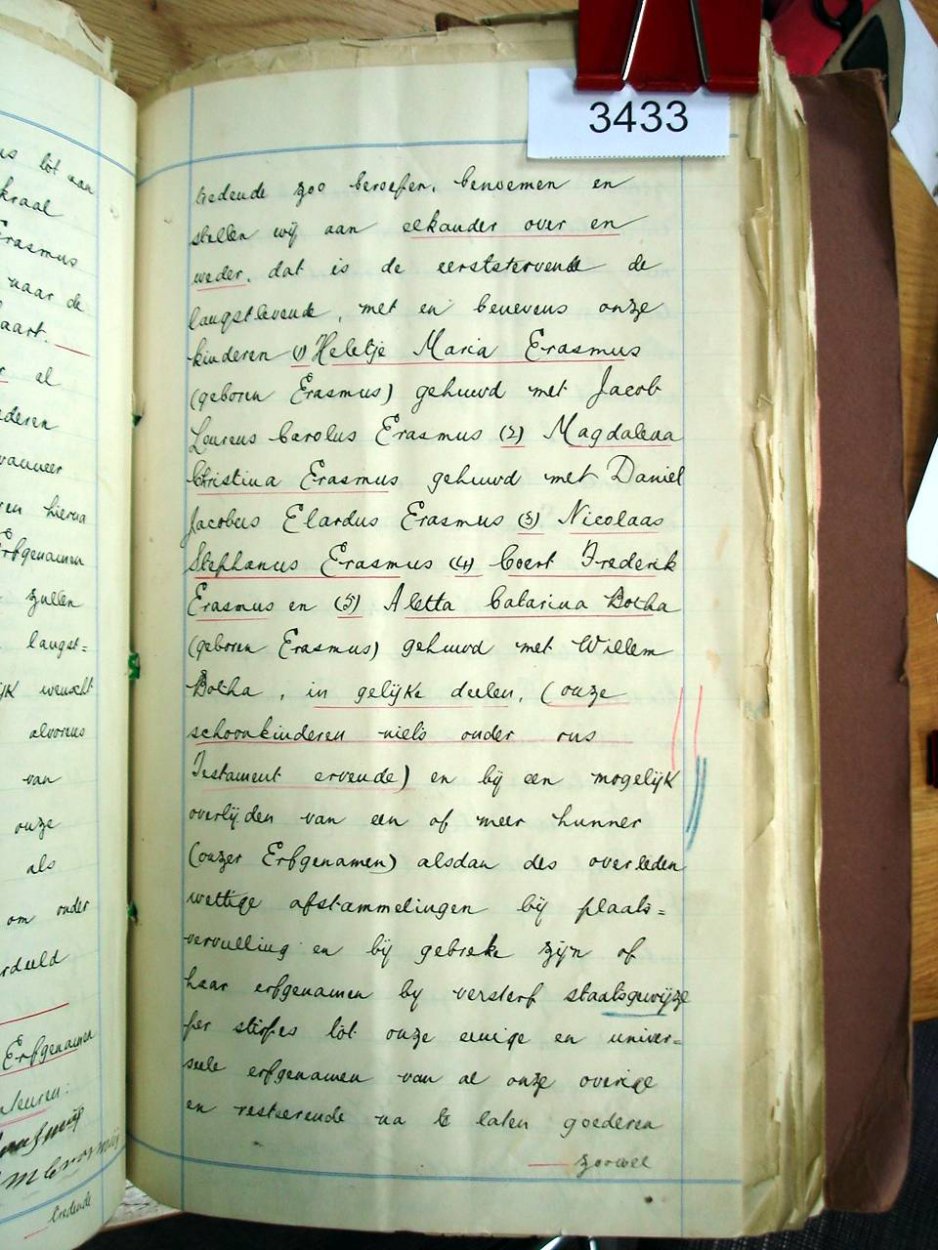 3433
tredende zoo beroepen, benoemen en
stellen wij aan elkander over en
weder, dat is de eerststervende de
langstlevende, met en benevens onze
kinderen (1) Heletje Maria Erasmus
(geboren Erasmus) gehuwd met Jacob
Lourens Carolus Erasmus (2) Magdalena
Christina Erasmus gehuwd met Daniel
Jacobus Elardus Erasmus (3) Nicolaas
Stephanus Erasmus (4) Coert Frederik
Erasmus en (5) Aletta Catarina Botha
(geboren Erasmus) gehuwd met Willem
Botha, in gelijke deelen, (onze
schoonkinderen niets onder ons
Testament ervende) en bij een mogelijk
overlijden van een of meer hunner
(onzer Erfgenamen) alsdan des overleden
wettige afstammelingen bij plaats=
vervulling en bij gebreke zijn of
haar erfgenamen by versterf staatsgewijze
per stirpes tot onze eenige en univer=
seele erfgenamen van al onze overige
en resteerende na te laten goederen
zoowel
us tot aan
kraal
Erasmus
naar de
aart.
el
ederen
wanneer
ren hierna
Erfgenamen
zullen
langst=
ijk wenscht
alvorens
van
onze
als
om onder
rdeeld
Erfgenamen
tredende